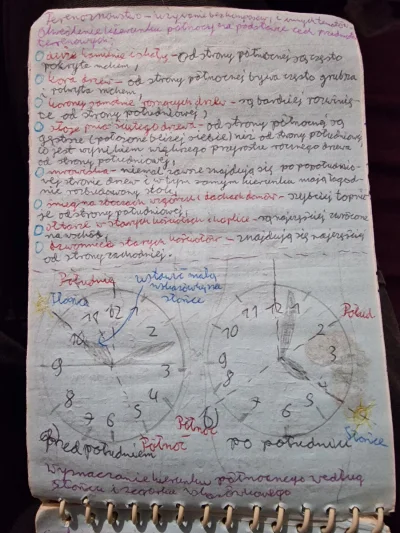 Terenoznawstwo -
określenie kierunku północy na podstawie cech przedm.
terenowych:
duże kamienie i skały - od strony północnej są często
pokryte mchem,
kora drzew - od strony północnej bywa często grubsza
i pokryta mchem,
korony samotnie rosnących drzew - są bardziej rozwinię
te od strony południowej,
słoje pnia ściętego drzewa - od strony północnej są
gęstsze (położone bliżej siebie) niż od strony południowej
co jest wynikiem większego przyrostu rocznego drzewa
od strony południowej,
mrowiska - niemal zawsze znajdują się po południo-
wej stronie drzew i w tym samym kierunku mają łagod-
nie stok,
śnieg na zboczach wzgórz i dachach domów - szybciej topnie
je od strony południowej,
ołtarze w starych kościołach i kaplice - są najczęściej zwrócone
na wschód,
dzwonnice starych kościołów - znajdują się najczęściej
od strony zachodniej.
Południe
Słońce
Ustawić małą
wskazówkę na
słońce
11 12 1
10 2
9 3
8 4
7 6 5
Północ
a) przed południem
11 12 1
10 2
9 3
8 4
7 6 5
Połud
Słońce
Północ
b) po południu
Wyznaczanie kierunku północnego według
słońca i zegarka